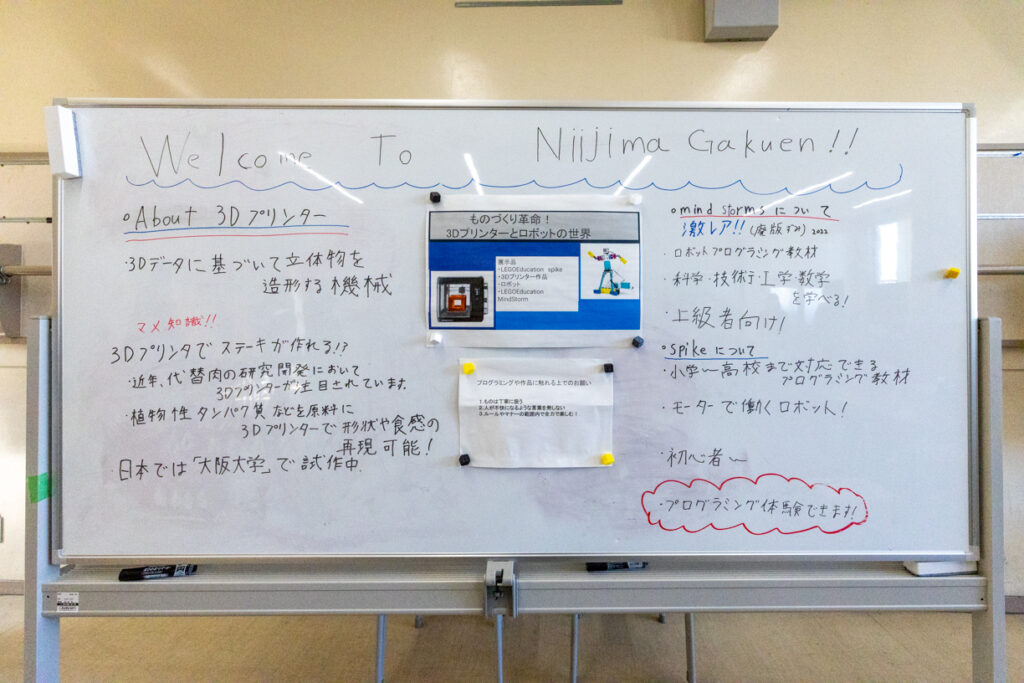 Welcome To Niijima Gakuen!!
○About 3Dプリンター
・3Dデータに基づいて立体物を
造形する機械
マメ知識!!
3Dプリンタでステーキが作れる!?
・近年、代替肉の研究開発において
3Dプリンターが注目されています。
・植物性タンパク質などを原料に
3Dプリンターで形状や食感の
再現可能!
・日本では「大阪大学」で試作中.
ものづくり革命!
3Dプリンターとロボットの世界
展示品
・LEGOEducation spike
・3Dプリンター作品
・ロボット
・LEGOEducation
MindStorm
プログラミングや作品に触れる上でのお願い
1.ものは丁寧に扱う
2.人が不快になるような言葉を発しない
3.ルールやマナーの範囲内で全力で楽しむ!
○mind stormsについて
激レア!!(廃版ずみ)2022
・ロボットプログラミング教材
・科学・技術・工学・数学
を学べる!
・上級者向け!
○spikeについて
・小学〜高校まで対応できる
プログラミング教材
・モーターで働くロボット!
・初心者〜
・プログラミング体験できます!